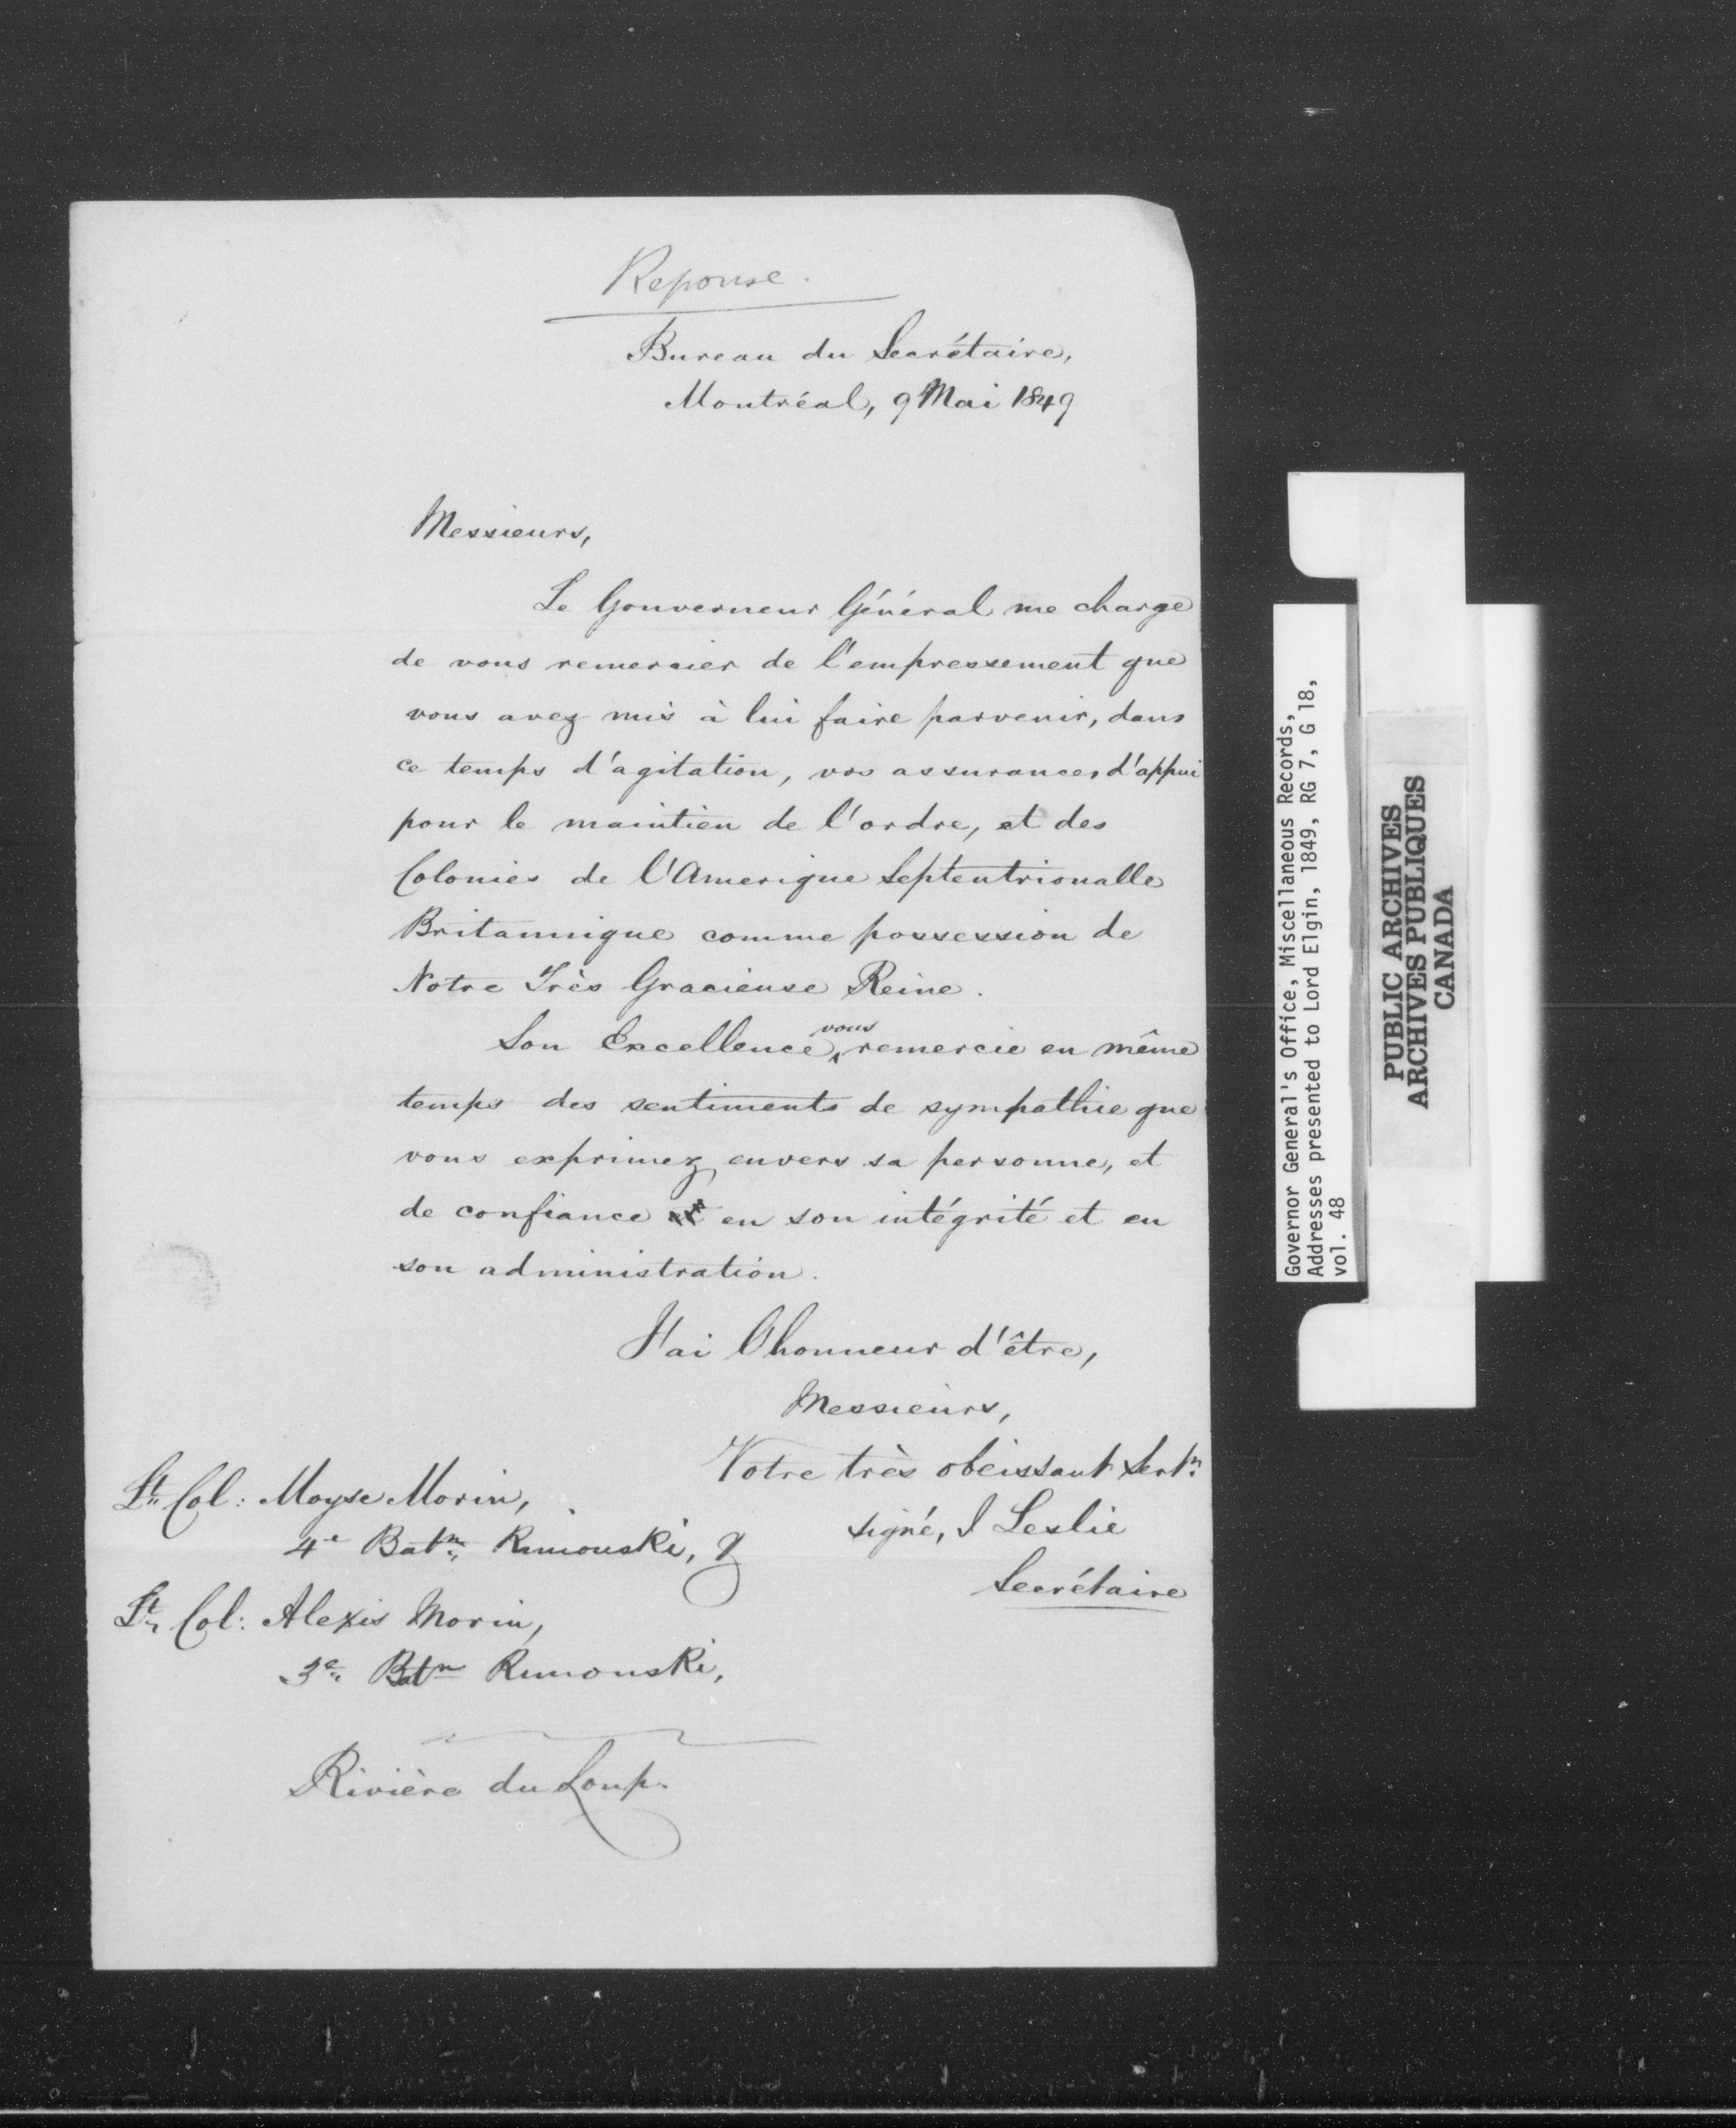 Reponse.
Bureau du Secrétaire,
Montréal, 9 Mai 1849
Messieurs,
Le Gouverneur Général me charge
de vous remercier de l'empressement que
vous avez mis à lui faire parvenir, dans
ce temps d'agitation, vos assurances d'appui
pour le maintien de l'ordre, et des
Colonies de l'Amerique Septentrionalle
Britannique comme possession de
Notre Très Gracieuse Reine.
Son Excellence vous remercie en même
temps des sentiments de sympathie que
vous exprimez envers sa personne, et
de confiance en son intégrité et en
son administration.
J'ai l'honneur d'être,
Messieurs,
Votre très obéissant Servtr.
signé, J Leslie
Secrétaire
Lt. Col: Moyse Morin,
4e Batn. Rimouski, &
Lt. Col: Alexis Morin,
3e. Batn Rimouski,
Rivière du Loup.
Governor General's Office, Miscellaneous Records,
Addresses presented to Lord Elgin, 1849, RG 7, G 18,
vol. 48
PUBLIC ARCHIVES
ARCHIVES PUBLIQUES
CANADA